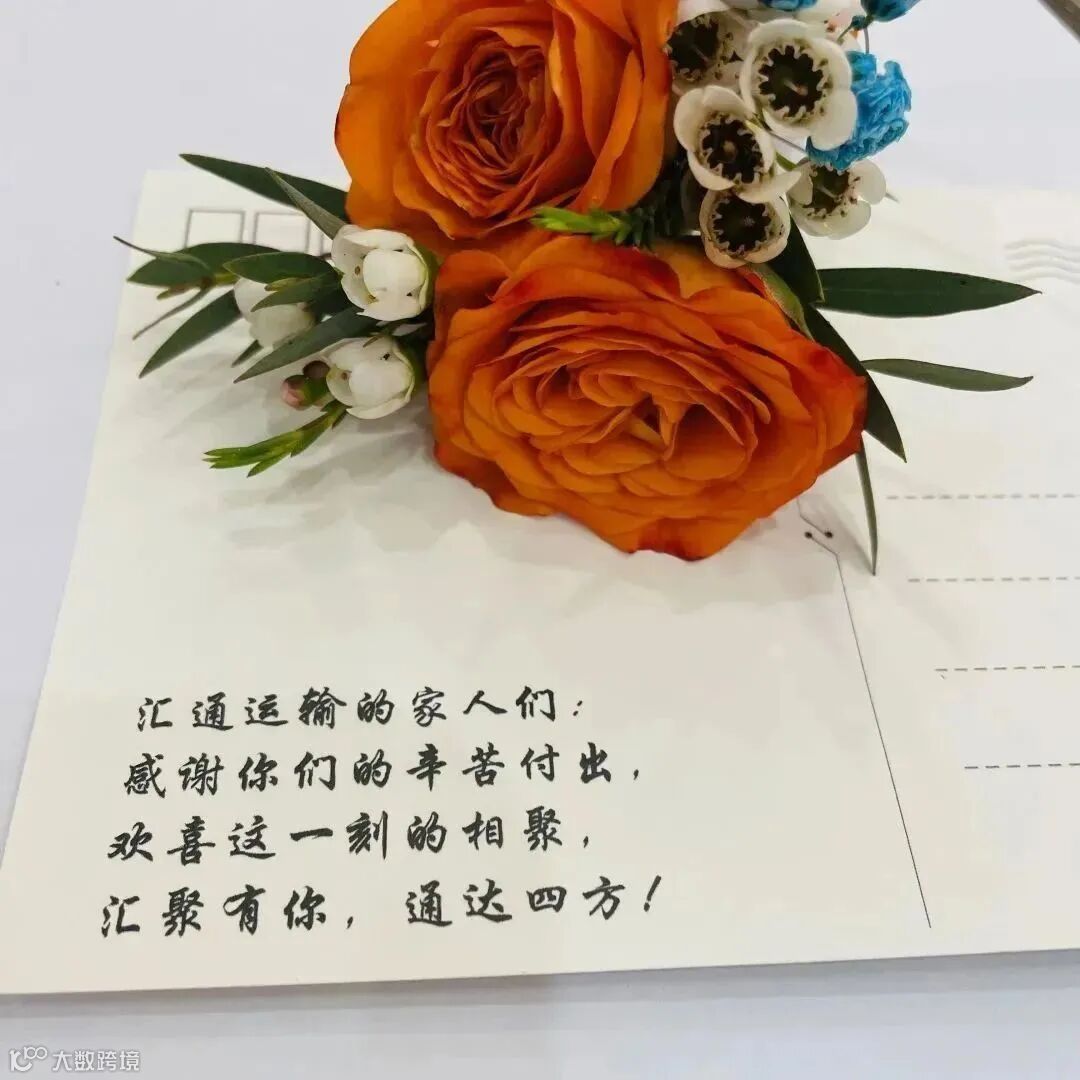 汇通运输的家人们：
感谢你们的辛苦付出，
欢喜这一刻的相聚，
汇聚有你，通达四方！
大数跨境